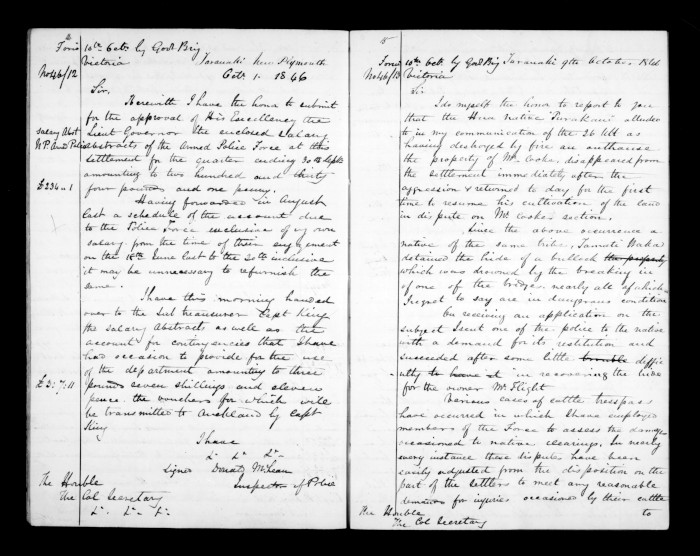 2
Forwd 10th Octr. by Govt Brig
Victoria
Taranaki New Plymouth
Octr. 1. 1846
No 46/12
Sir,
Herewith I have the honor to submit
for the approval of His Excellency the
Lieut Governor the enclosed Salary
Salary Abst
abstracts of the Armed Police Force at this
settlement for the quarter ending 30th Septr
amounting to two hundred and thirty
£234 " 1
four pounds and one penny.
Having forwarded in August
last a schedule of the account due
to the Police Force exclusive of my own
salary from the time of their engagement
on the 18th June last to the 30th inclusive
it may be unnecessary to refurnish the
same.
I have this morning handed
over to the Sub treasurer Capt King
the salary abstracts as well as the
account for contingencies that I have
had occasion to provide for the use
of the department amounting to three
£3:7:11
pounds seven shillings and eleven
pence, the vouchers for which will
be transmitted to Auckland by Capt
King
I have
&c &c &c
Signed Donald McLean
Inspector of Police
The Honble
The Col Secretary
&c. &c. &c.
Forwd 10th Oct. by Govt Brig
Taranaki 9th October 1846
No 46/13
Victoria
Sir
I do myself the honor to report to you
that the native
alluded
to in my communication of the 26 Ult as
having destroyed by fire an outhouse
the property of Mr. Cooke, disappeared from
the settlement immediately after the
aggression & returned to day for the first
time to resume his cultivation of the land
in dispute on Mr. Cooke's section.
Since the above occurrence a
native of the same tribe,
detained the hide of a bullock the property
which was drowned by the breaking in
of one of the bridges, nearly all of which
I regret to say are in dangerous condition
On receiving an application on the
subject I sent one of the police to the native
with a demand for its restitution and
succeeded after some little trouble diffic
ulty to have it in recovering the hide
for the owner Mr. Flight
Various cases of cattle trespass
have occurred in which I have employed
members of the Force to assess the damage
occasioned to native clearings. In nearly
every instance these disputes have been
easily adjusted from the disposition on the
part of the settlers to meet any reasonable
demands for injuries occasioned by their cattle
to
The Honble
The Col Secretary